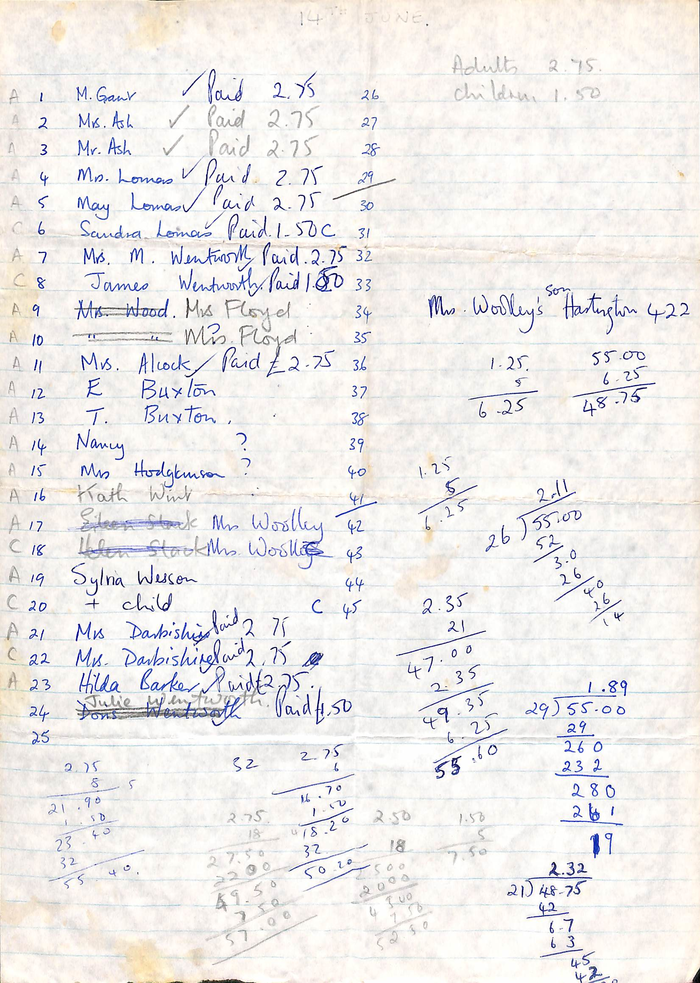 14TH JUNE.
Adults 2.75.
children 1.50
A 1 M. Gaunt ✓ Paid 2.75 26
A 2 Mrs. Ash ✓ Paid 2.75 27
A 3 Mr. Ash ✓ Paid 2.75 28
A 4 Mrs. Lomas ✓ Paid 2.75 29
A 5 May Lomas ✓ Paid 2.75 30
C 6 Sandra Lomas ✓ Paid. 1-50 C 31
A 7 Mrs. M. Wentworth Paid. 2.75 32
C 8 James Wentworth. Paid 1.50 33
A 9 Mrs. Wood. Mrs Floyd 34
A 10 " " Mrs. Floyd 35
A 11 Mrs. Alcock ✓ Paid £2.75 36
A 12 E Buxton 37
A 13 T. Buxton. 38
A 14 Nancy ? 39
A 15 Mrs Hodgkinson ? 40
A 16 Kath Wint 41
A 17 Mrs Woolley 42
C 18 Helen Slack Mrs. Woolley 43
A 19 Sylvia Wesson 44
C 20 + child C 45
A 21 Mrs Darbishire Paid 2 75
C 22 Mrs. Darbishire Paid 2.75
A 23 Hilda Barker ✓ Paid £2.75.
Julie Wentworth.
24 Doris Wentworth Paid £1.50
25
Mrs. Woolley's son Hartington 422
1.25.
5
6.25
55.00
6.25
48.75
1.25
5
6.25
2.11
26)55.00
52
3.0
26
40
26
14
2.35
21
47.00
2.35
49.35
6.25
55.60
1.89
29)55.00
29
260
232
280
261
19
2.75
8 5
21.90
1.50
23.40
32
55.40.
32
2.75
6
16.70
1.50
18.20
32
50.20
2.75
18
27.50
2200
49.50
7.50
57.00
2.50
18
2000
52.50
1.50
5
7.50
2.32
21)48.75
42
6.7
63
45
42